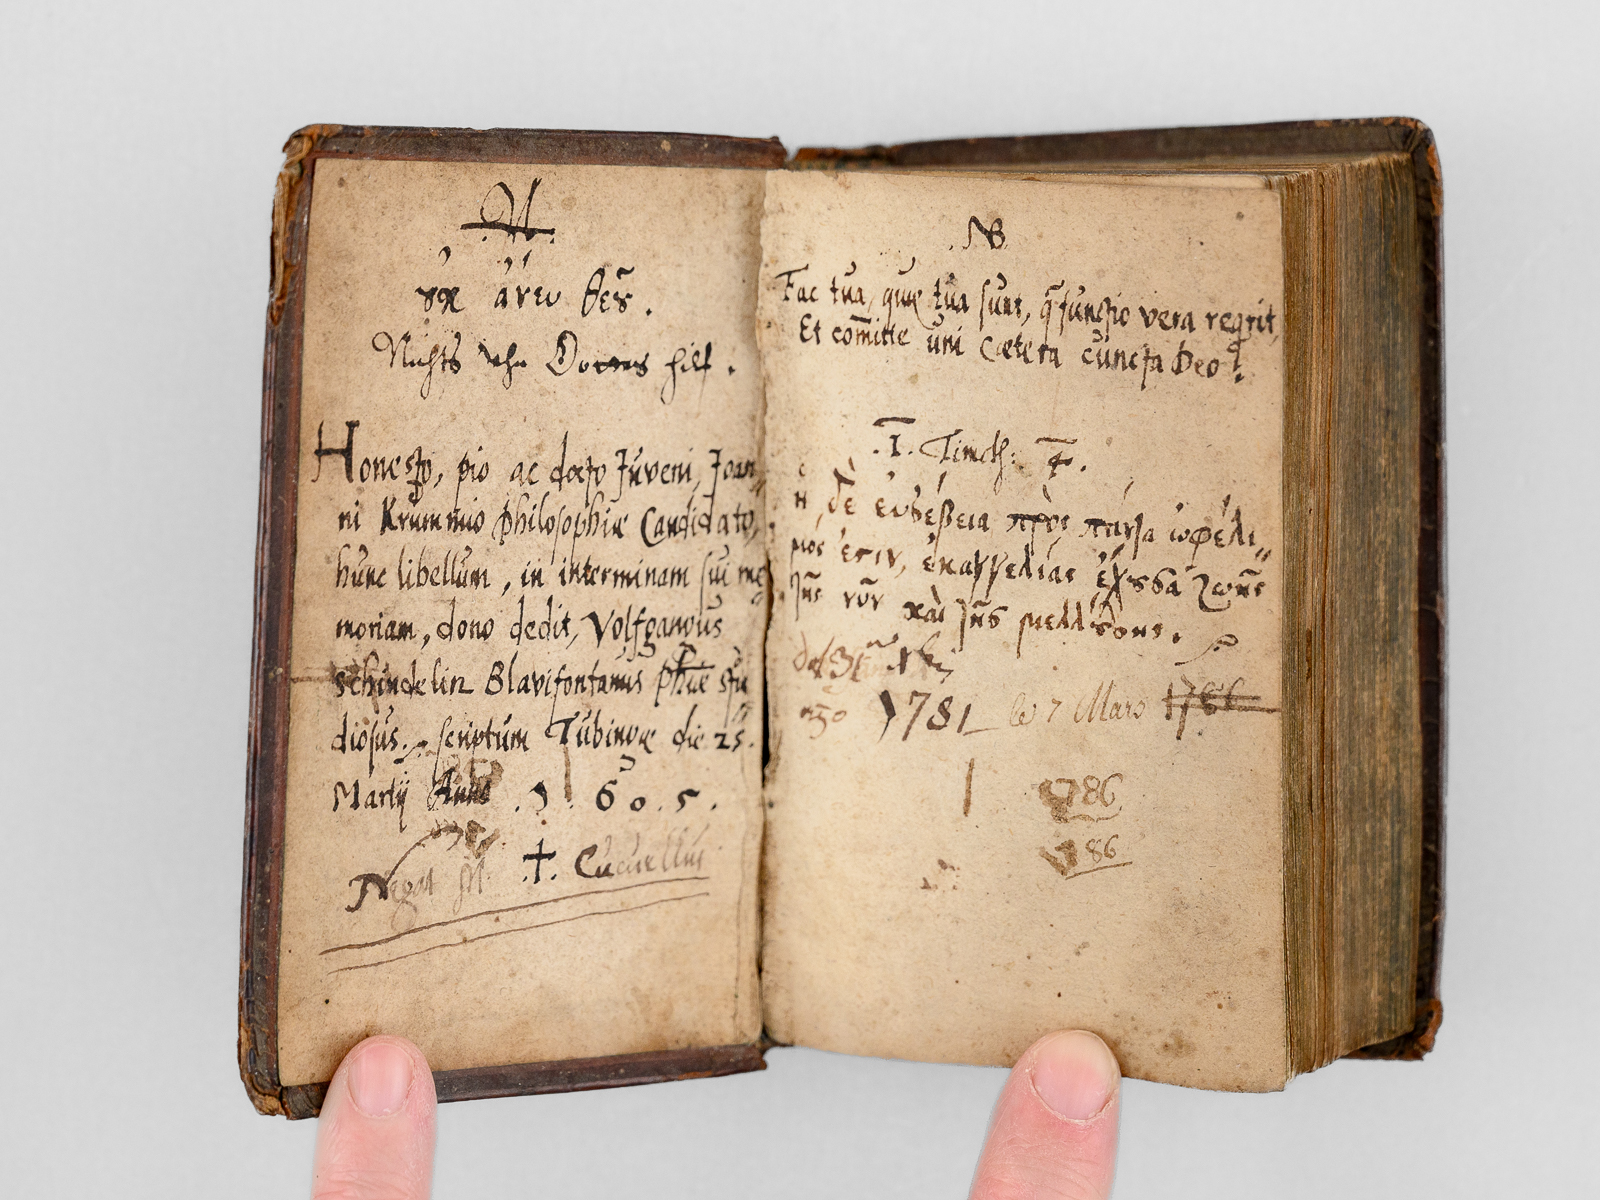 οὐκ ἄνω θεοῦ.
Nichts ohn Gottes hilf.
Honesto, pio ac docto Juveni, Joan„
ni Krummio Philosophiæ Candidato,
hunc libellum, in interminam sui me„
moriam, dono dedit, Volfgangus
Schindelin Blavifontanus Phiæ stu
diosus. scriptum Tubingæ die 25.
Martij Anno .1.6.0.5.
Negat
.†. Cucullus
NB
Fac tua, quæ tua sunt, q̃ functio vera reqrit,
Et com̄itte uni Cætera cuncta Deo!
.I. Timoth: 4.
ἡ δὲ ἐυσέβεια πρὸς πάντα ὠφέλι„
μός ἐστιν, ἐπαγγελίας ἔχουσα ζωῆς
τῆς νῦν καὶ τῆς μελλούσης.
1781 le 7 Mars 1786
1786
86